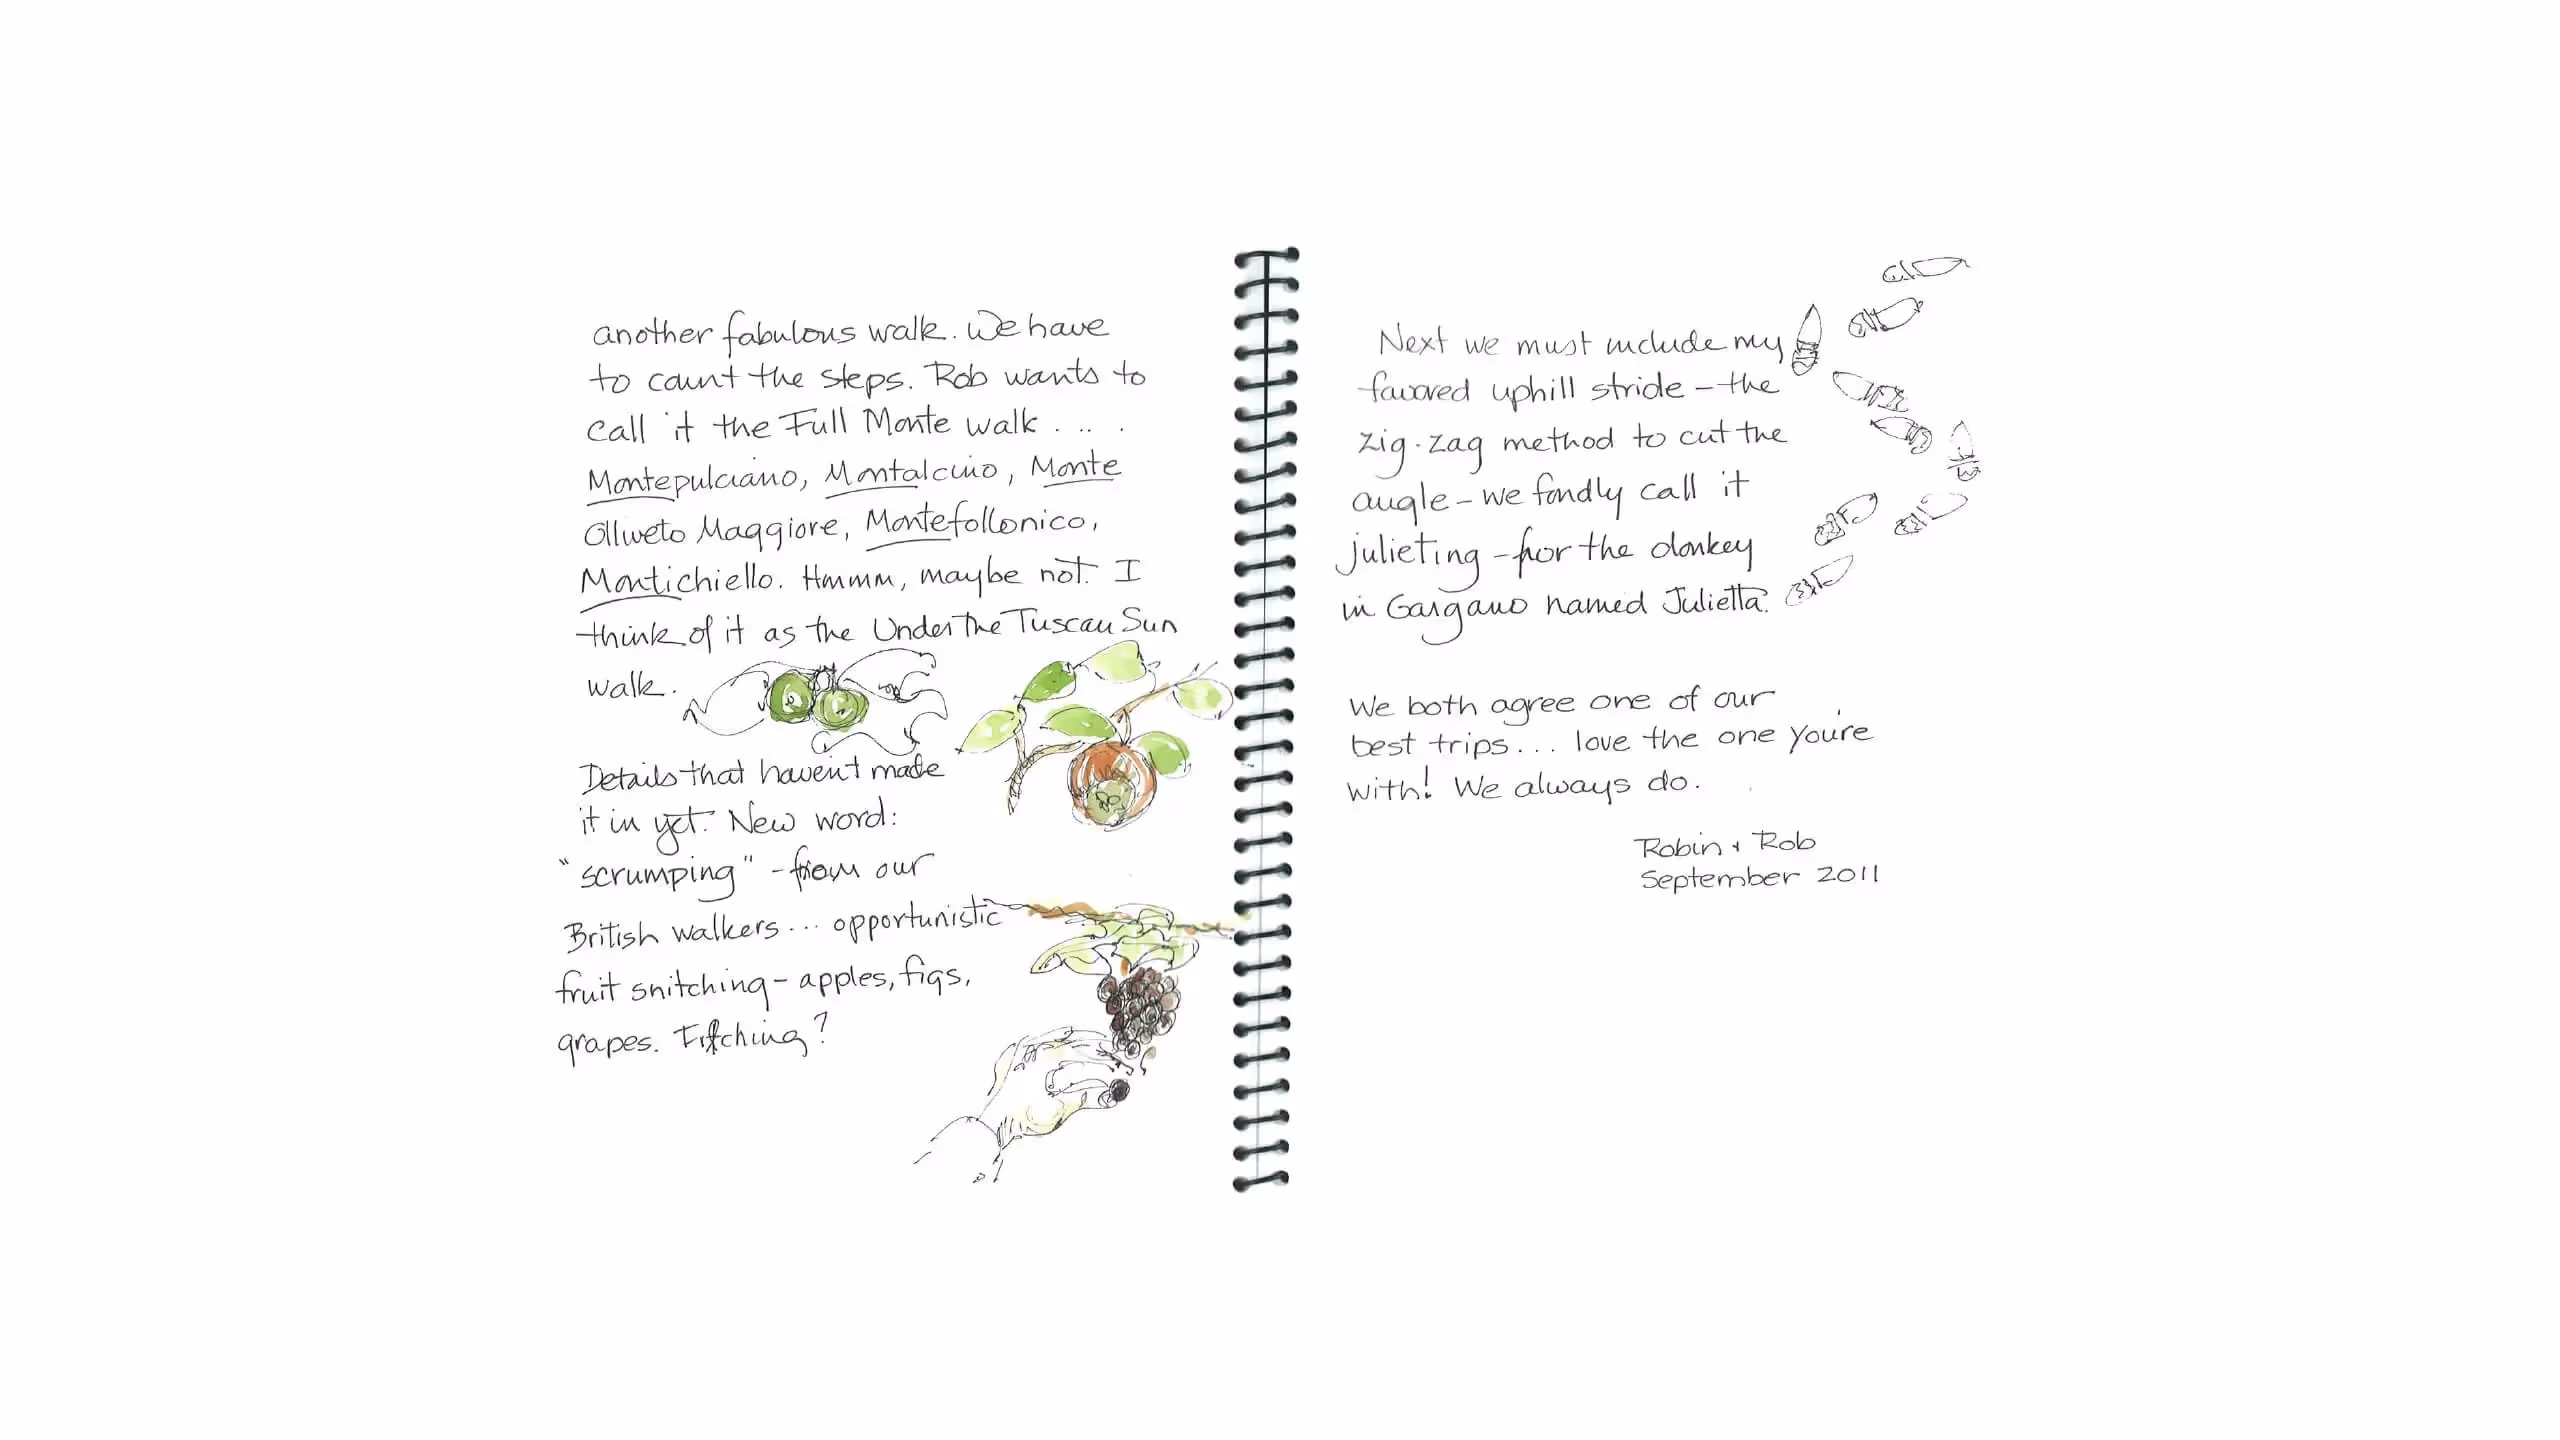 another fabulous walk. We have
to count the steps. Rob wants to
call it the Full Monte walk . . . .
Montepulciano, Montalcino, Monte
Oliveto Maggiore, Montefollonico,
Montichiello. Hmmm, maybe not. I
think of it as the Under the Tuscan Sun
walk.
Details that haven't made
it in yet. New word:
"scrumping" - from our
British walkers... opportunistic
fruit snitching - apples, figs,
grapes. Fitching?
Next we must include my
favored uphill stride - the
zig-zag method to cut the
angle - we fondly call it
julieting - for the donkey
in Gargano named Julietta.
We both agree one of our
best trips... love the one you're
with! We always do.
Robin + Rob
September 2011